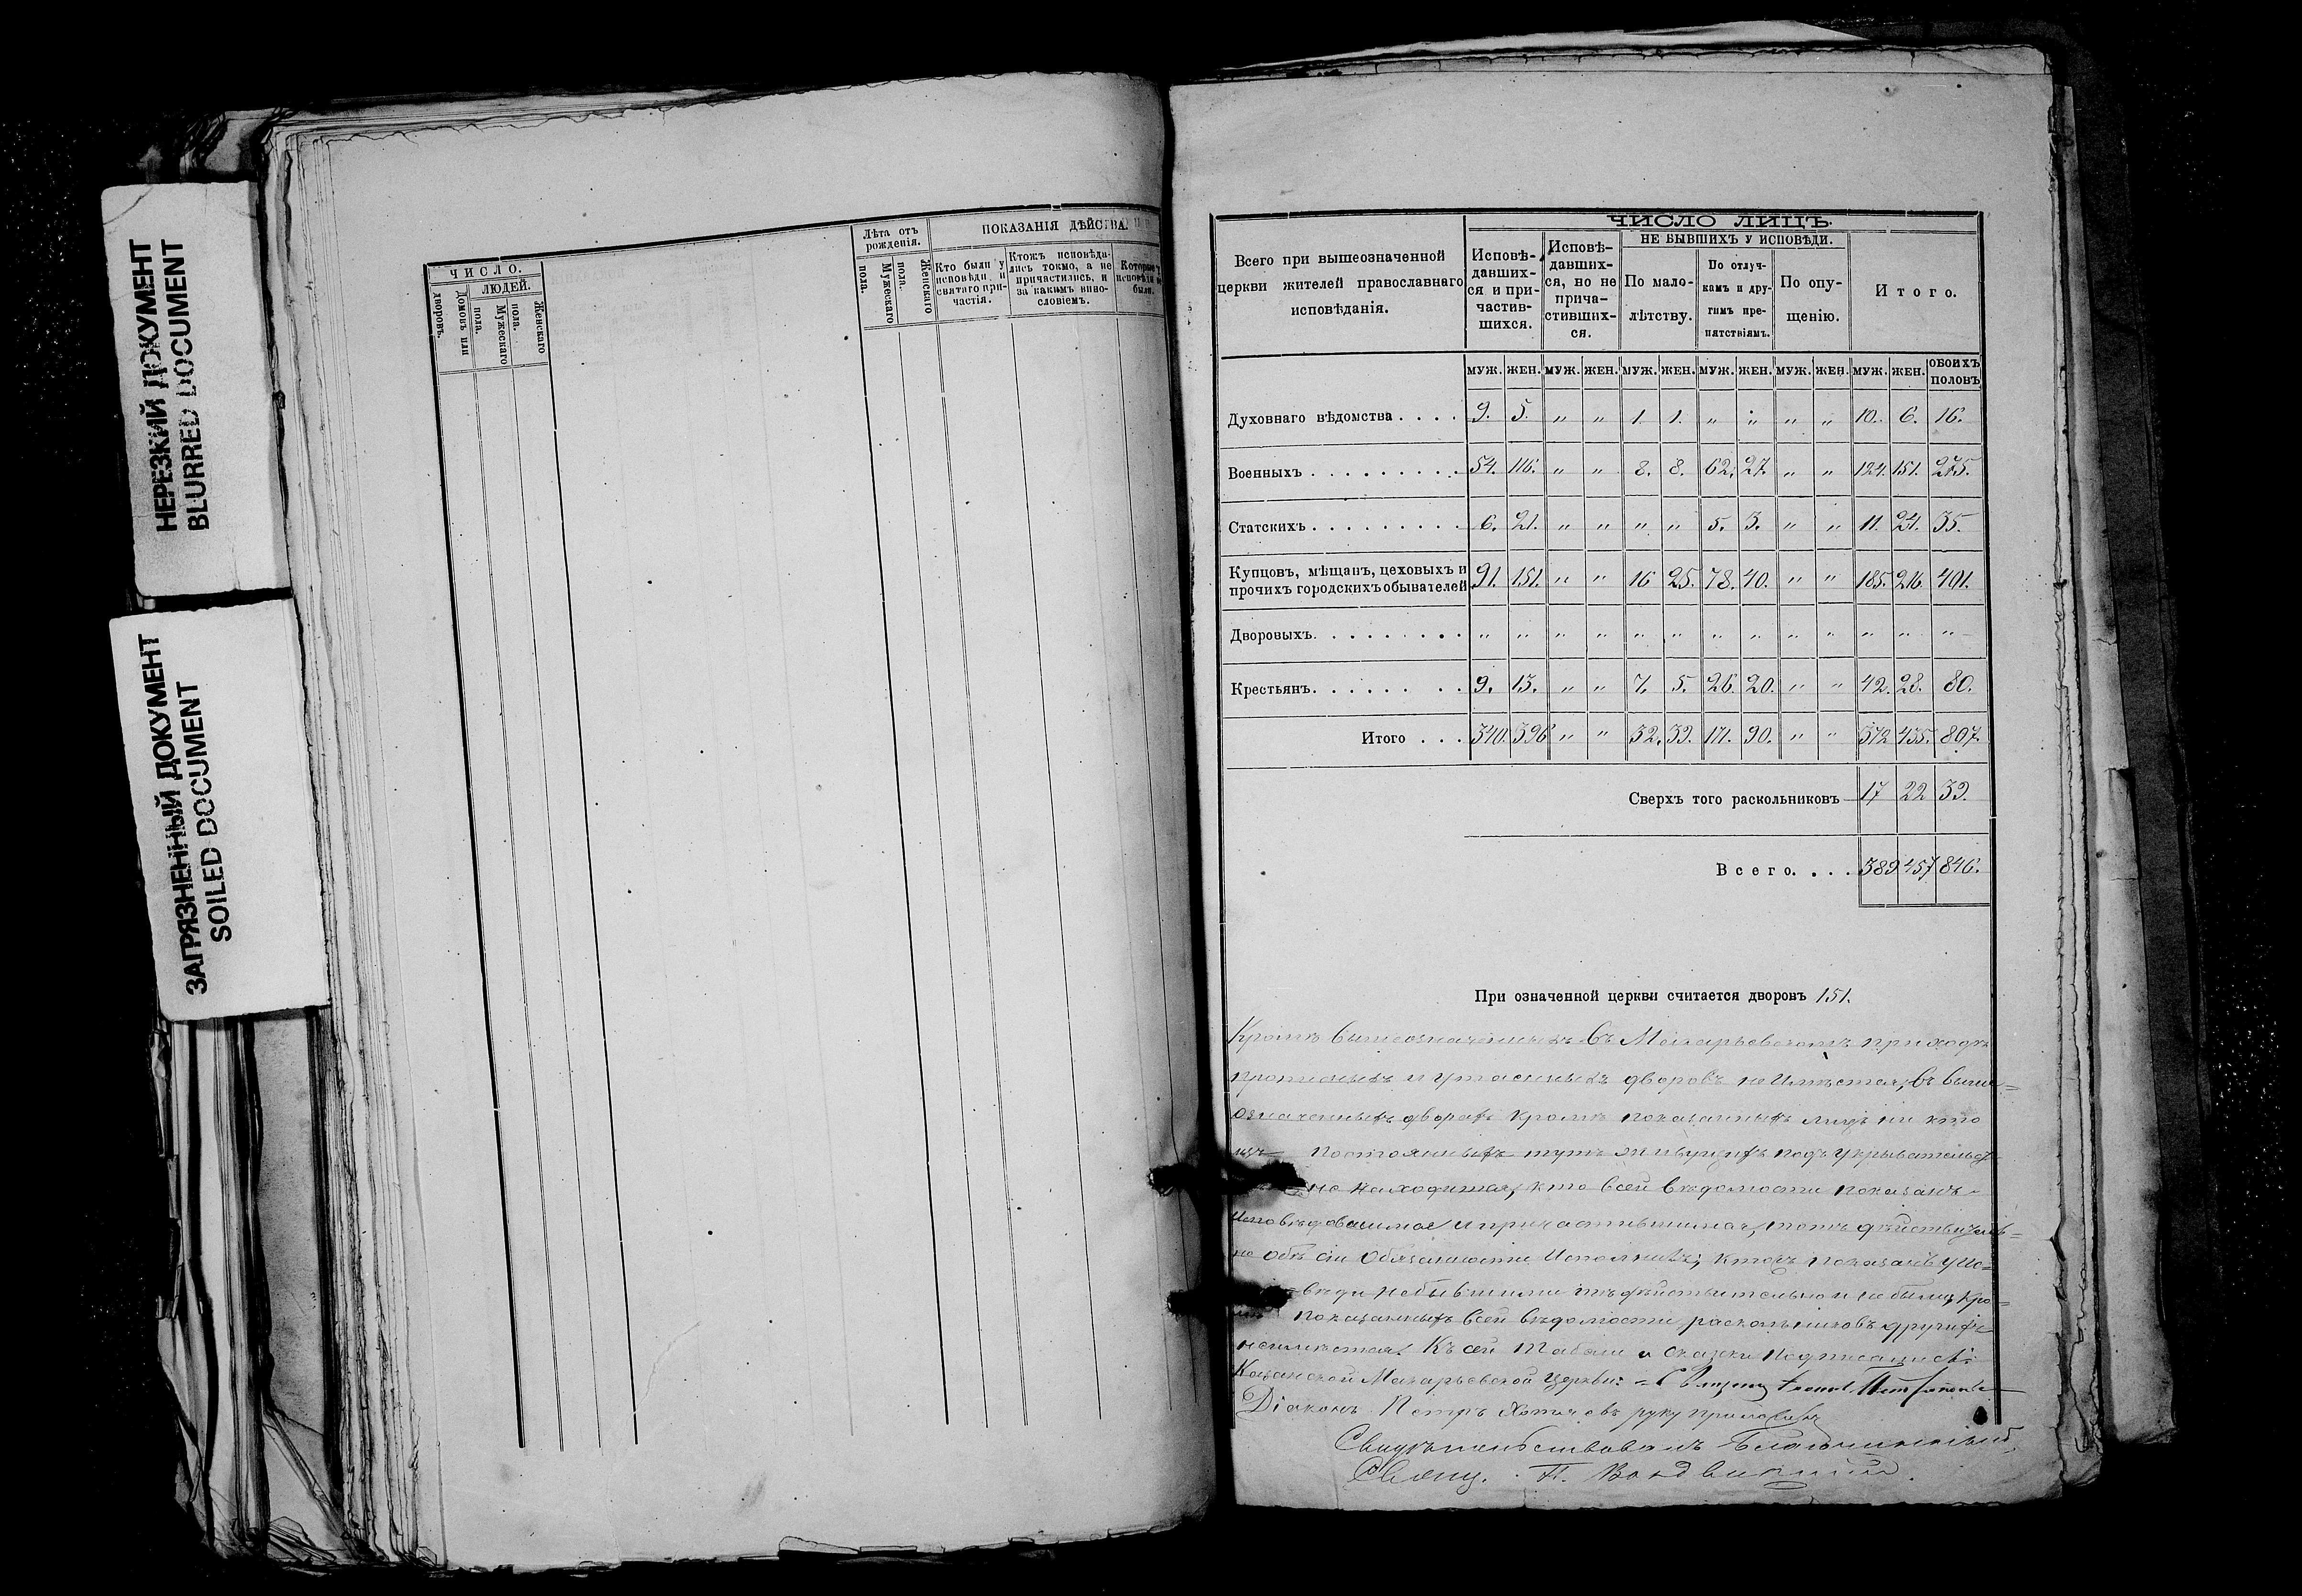 НЕРЕЗКИЙ ДОКУМЕНТ
BLURRED DOCUMENT
ЗАГРЯЗНЕННЫЙ ДОКУМЕНТ
SOILED DOCUMENT
ЧИСЛО.
ЛЮДЕЙ.
дворовъ.
Домовъ или
Мужескаго пола.
Женскаго пола.
Лѣта отъ рожденія.
Мужескаго пола.
Женскаго пола.
ПОКАЗАНІЯ ДѢЙСТВА.
Кто были у исповѣди и святаго причастія.
Ктожъ исповѣдались токмо, а не причастились, и за какимъ винословіемъ.
Которые исповѣди не были.
ЧИСЛО ЛИЦЪ.
Всего при вышеозначенной церкви жителей православнаго исповѣданія.
Исповѣдавшихся и причастившихся.
Исповѣдавшихся, но не причастившихся.
НЕ БЫВШИХЪ У ИСПОВѢДИ.
По малолѣтству.
По отлучкамъ и другимъ препятствіямъ.
По опущенію.
Итого.
МУЖ. ЖЕН. МУЖ. ЖЕН. МУЖ. ЖЕН. МУЖ. ЖЕН. МУЖ. ЖЕН. МУЖ. ЖЕН. ОБОИХЪ ПОЛОВЪ
Духовнаго вѣдомства . . . . 9. 5. „ „ 1. 1. „ „ „ „ 10. 6. 16.
Военныхъ . . . . . . . . . 54. 116. „ „ 8. 8. 62. 27. „ „ 124. 151. 275.
Статскихъ . . . . . . . . . 6. 21. „ „ „ „ 5. 3. „ „ 11. 24. 35.
Купцовъ, мѣщанъ, цеховыхъ и прочихъ городскихъ обывателей 91. 151. „ „ 16 25. 78. 40. „ „ 185. 216. 401.
Дворовыхъ. . . . . . . . . „ „ „ „ „ „ „ „ „ „ „ „ „
Крестьянъ. . . . . . . . . 9. 13. „ „ 7. 5. 26. 20. „ „ 42. 28. 80.
Итого . . . 340. 396 „ „ 32. 39. 171. 90. „ „ 372 435. 807.
Сверхъ того раскольниковъ 17 22 39.
Всего. . . . 389 457 846.
При означенной церкви считается дворовъ 151.
Кромѣ вышеозначенныхъ въ Макарьевскомъ приходѣ
и утаенныхъ дворовъ не имѣется, въ выше=
означенныхъ дворахъ кромѣ показанныхъ лицъ ни кто
изъ постоянныхъ тутъ живущихъ подъ укрывательст
не находится, кто всей вѣдомости показанъ
и причастившимся, тотъ дѣйствитель=
но обѣ сіи обязанности исполнилъ; ктожъ показанъ у ис=
вѣди небывшими тѣ дѣйствительно и не были, кро=
показанныхъ всей вѣдомости раскольниковъ другихъ
неимѣется. Къ сей и сказки подписались
Казанской Макарьевской церкви:
Діаконъ Петръ руку приложилъ
Свидѣтельствовалъ Благочинный,
Свящ. П.